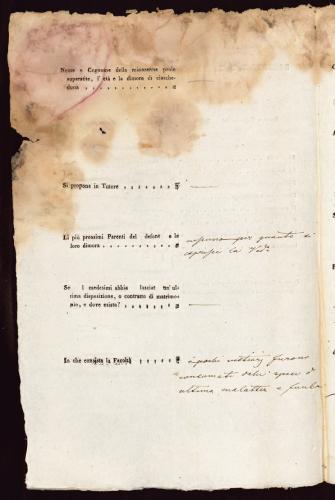 Nome e Cognome della minorenne prole
superstite, l'età e la dimora di ciasche-
duna
Si propone in Tutore
Li più prossimi Parenti del defunto e le
loro dimora
nessuno per quanto si
espresse la Ved.
Se i medesimi abbia lasciat un'ul-
tima disposizione, o contratto di matrimo-
nio, e dove esista?
In che consista la Facoltà
i pochi vestiarj furono
consumati delle spese d
ultima malattia e funla